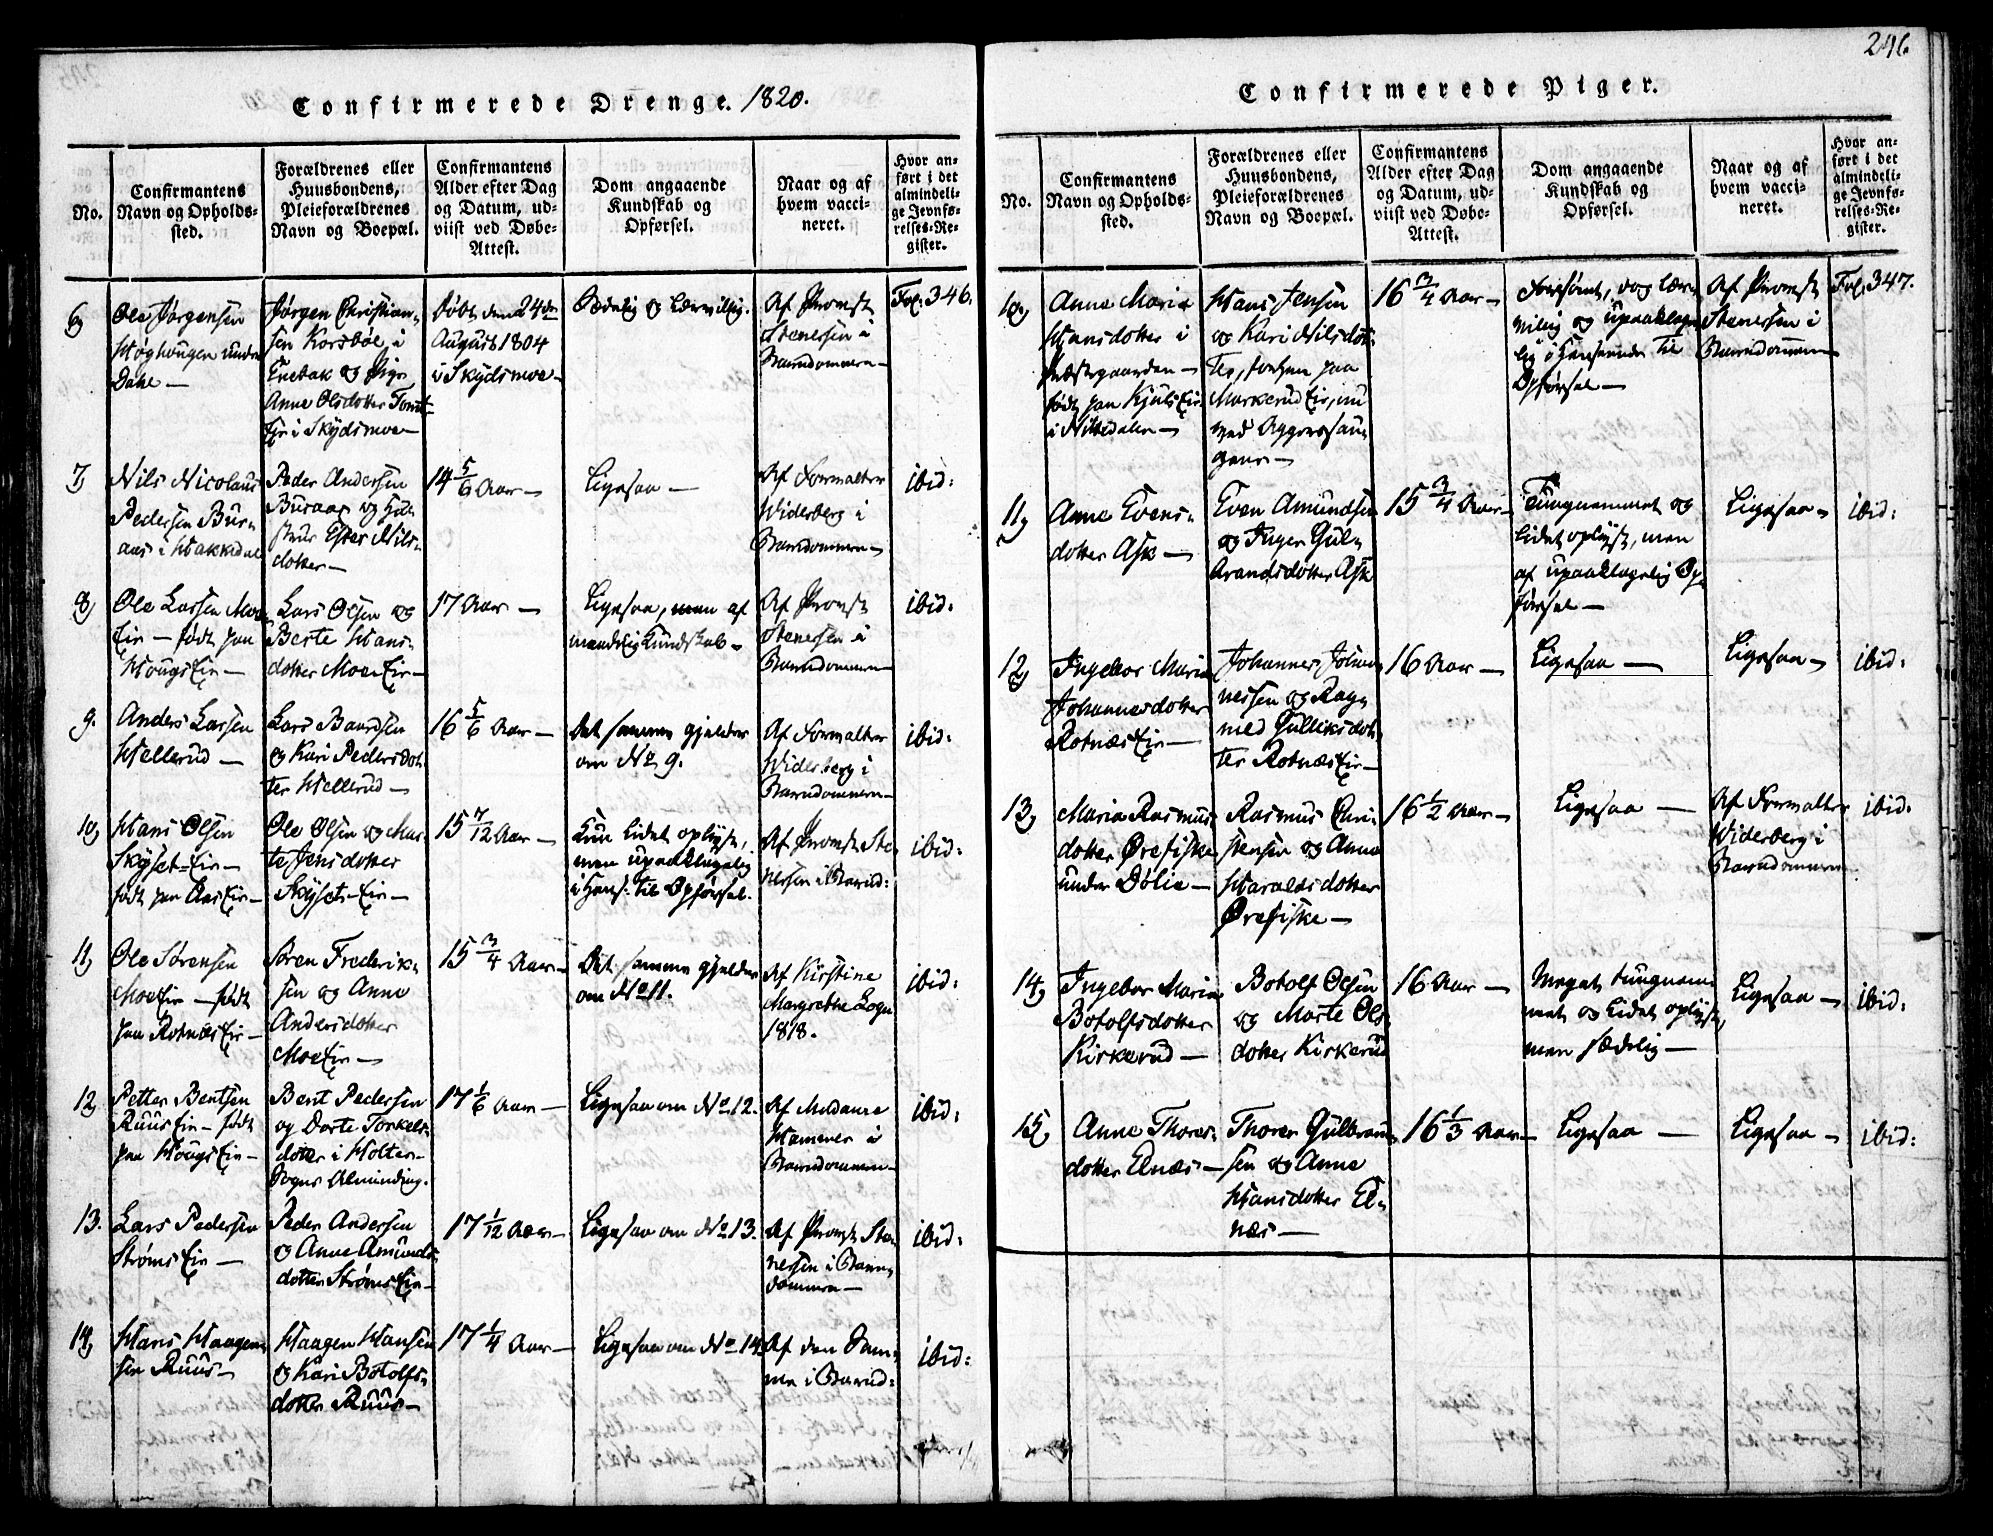 246
Confirmerede Drenge. 1820.
No.
Confirmantens
Navn og Opholds-
sted.
Forældrenes eller
Huusbondens,
Pleieforældrenes
Navn og Boepæl.
Confirmantens
Alder efter Dag
og Datum, ud-
viist ved Døbe-
Attest.
Dom angaaende
Kundskab og
Opførsel.
Naar og af
hvem vacci-
neret.
Hvor an-
ført i det
almindeli-
ge Jevnfø-
relses-Re-
gister.
6)
Ole Jørgensen
Høghougen under
Dahl —
Jørgen Christian-
sen Korsbøl i
Enebak og Pige
Anne Olsdotter Tomt-
Eje i Skydsmoe —
døbt den 24de
August 1804
i Skydsmoe —
Sædelig og lærvillig.
Af Provst
Stenersen i
Barndommen —
Fol. 346.
7)
Nils Nicolaus
Pedersen Bur-
aas i Hakkedal
Peder Andersen
Buraas og Hu-
strue Ester Nils-
dotter —
14 5/6 Aar —
Ligesaa —
Af Forvalter
Widerberg i
Barndommen —
ibid:
8)
Ole Larsen Moe
Eie — født paa
Hougs Eie —
Lars Olsen og
Berte Hans-
dotter Moe Eie —
17 Aar —
Ligesaa, men af
maadelig Kundskab —
Af Provst
Stenersen i
Barndommen —
ibid:
9.
Anders Larsen
Hellerud —
Lars Baardsen
og Kari Pedersdot-
ter Hellerud —
16 5/6 Aar —
Det samme gjelder
om No 9.
Af Forvalter
Widerberg i
Barndommen —
ibid:
10)
Hans Olsen
Skyset-Eie —
født paa Aas Eie —
Ole Olsen og Mar-
te Jensdotter
Skyset-Eie —
15 7/12 Aar —
Kun lidet oplyst,
men upaaklagelig
i Hens: til Opførsel.
Af Provst Ste-
nersen i Barnd:
ibid:
11)
Ole Sørensen
Moe Eie — født
paa Rotnæs Eie —
Søren Frederik-
sen og Anne
Andersdotter
Moe Eie —
15 3/4 Aar —
Det samme gjelder
om No 11.
Af Kirstine
Margrethe Logn
1818.
ibid:
12
Petter Bentsen
Ruus Eie — født
paa Hougs Eie —
Bent Pedersen
og Dorte Torkels-
dotter i Holter-
Sogns Alminding.
17 1/6 Aar —
Ligesaa om No 12.
Af Madame
Hammer i
Barndommen —
ibid:
13.
Lars Pedersen
Strøms Eie —
Peder Andersen
og Anne Amunds-
dotter Strøms Eie —
17 1/12 Aar —
Ligesaa om No 13.
Af Provst Ste-
nersen i Barn-
dommen —
ibid:
14)
Hans Haagen-
sen Ruus —
Haagen Hansen
og Kari Botolfs-
dotter Ruus —
17 1/4 Aar —
Ligesaa om No 14.
Af den Sam-
me i Barnd:
ibid:
Confirmerede Piger.
No.
Confirmantens
Navn og Opholds-
sted.
Forældrenes eller
Huusbondens,
Pleieforældrenes
Navn og Boepæl.
Confirmantens
Alder efter Dag
og Datum, ud-
viist ved Døbe-
Attest.
Dom angaaende
Kundskab og
Opførsel.
Naar og af
hvem vacci-
neret.
Hvor an-
ført i det
almindeli-
ge Jevnfø-
relses-Re-
gister.
10)
Anne Maria
Hansdotter i
Præstegaarden —
født paa Kjuls Eie
i Nittedalen —
Hans Jensen
og Kari Nilsdot-
ter, forhen paa
Markerud Eie, nu
ved Aggersau-
gene —
16 3/4 Aar —
Forsømt, dog lær-
villig og upaaklage-
lig i Henseende til
Opførsel —
Af Provst
Stenersen i
Barndommen —
Fol. 347.
11)
Anne Evens-
dotter Ask —
Even Amundsen
og Inger Gul-
brandsdotter Ask
15 3/4 Aar —
Tungnemmet og
lidet oplyst, men
af upaaklagelig Op-
førsel —
Ligesaa —
ibid:
12)
Ingebor Maria
Johannesdotter
Rotnæs Eie —
Johannes Johan-
nessen og Rag-
nild Gulliksdot-
ter Rotnæs Eie —
16 Aar —
Ligesaa —
Ligesaa —
ibid:
13)
Maria Rasmus-
dotter Ørefiske
under Dølie —
Rasmus Chri-
stensen og Anne
Haraldsdotter
Ørefiske —
16 1/2 Aar —
Ligesaa —
Af Forvalter
Widerberg i
Barndommen —
ibid:
14)
Ingebor Maria
Botolfsdotter
Kirkerud —
Botolf Olsen
og Marte Ols-
dotter Kirkerud
16 Aar —
Meget tungnem-
met og lidet oplyst,
men sædelig —
Ligesaa —
ibid:
15)
Anne Thores-
dotter Elnæs —
Thorer Gulbrand-
sen og Anne
Hansdotter El-
næs —
16 1/3 Aar —
Ligesaa —
Ligesaa —
ibid: